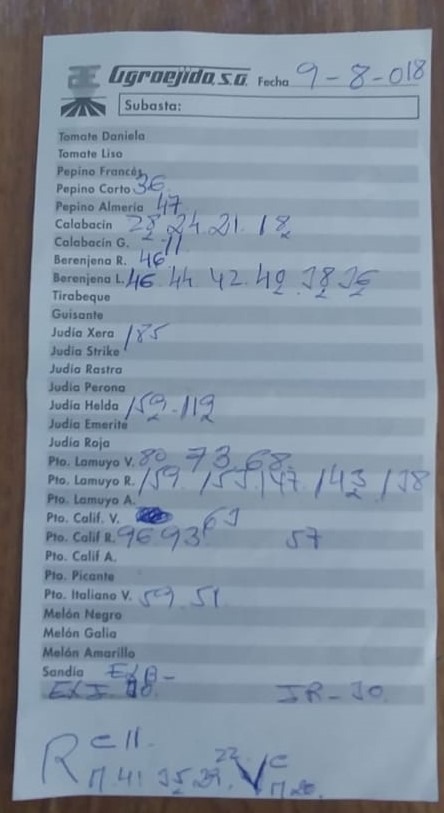 Agroejido, S.A. Fecha 9-8-018
Subasta:
Tomate Daniela
Tomate Liso
Pepino Francés
Pepino Corto 36
Pepino Almería 47
Calabacín 28 24. 21. 18
Calabacín G. 11
Berenjena R. 46
Berenjena L. 46. 44 42. 40
Tirabeque
Guisante
Judía Xera 185
Judía Strike
Judía Rastra
Judía Perona
Judía Helda 159 - 119
Judía Emerite
Judía Roja
Pto. Lamuyo V. 80 73 68
Pto. Lamuyo R. 159. 153 147 143 138
Pto. Lamuyo A.
Pto. Calif. V. 63
Pto. Calif R. 96 93 57
Pto. Calif A.
Pto. Picante
Pto. Italiano V. 59. 51
Melón Negro
Melón Galia
Melón Amarillo
Sandía
R C 11. V C
41 35 29. 22